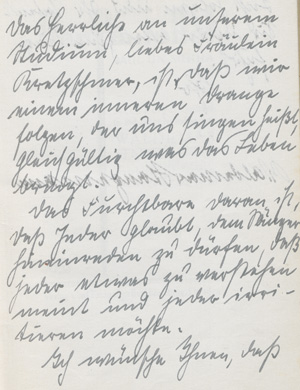 Das Herrliche an unserem
Studium, liebes Fräulein
Kretzschmer, ist, daß wir
einem inneren Drange
folgen, der uns singen heißt,
gleichgültig was das Leben
bringt.
Das Furchtbare daran ist,
daß Jeder glaubt, dem Sänger
hineinreden zu dürfen, daß
jeder etwas zu verstehen
meint und jeder irri-
tieren möchte.
Ich wünsche Ihnen, daß